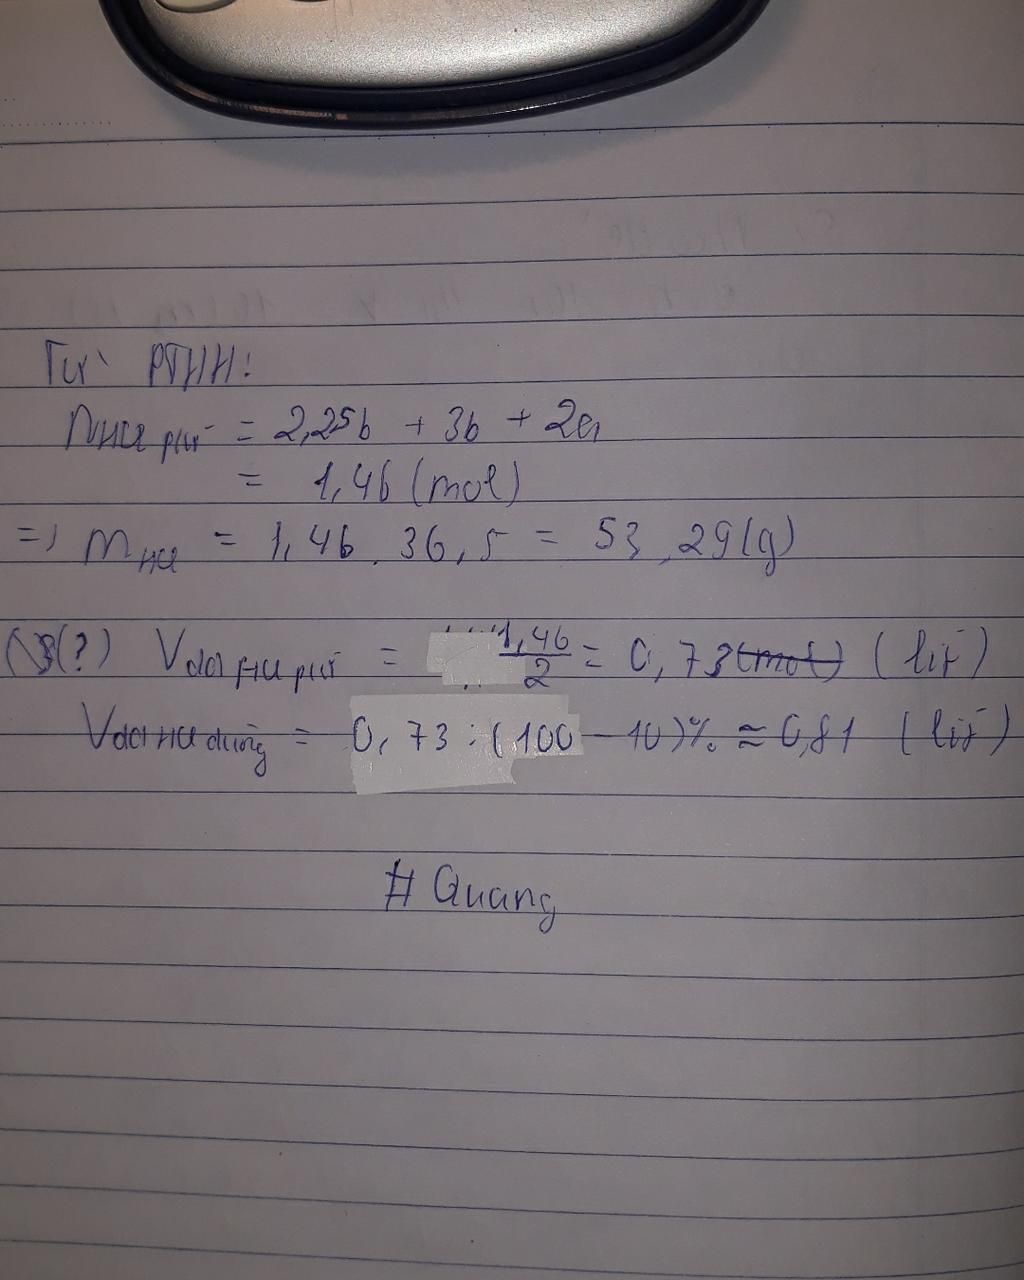 Từ PTHH:
nHCl pư = 2,25b + 3b + 2a
= 1,46 (mol)
=> mHCl = 1,46 . 36,5 = 53,29 (g)
(?) Vdd HCl pư = 1,46/2 = 0,73 (mol) (lít)
Vdd HCl dùng = 0,73 : (100 - 10)% ≈ 0,81 (lít)
# Quang